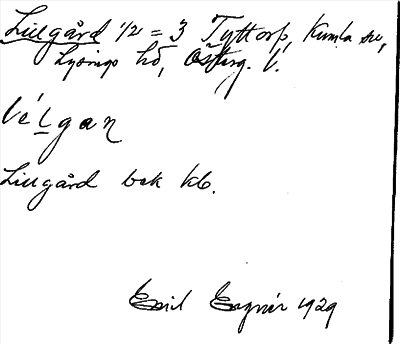 Lillgård 1/2 = 3 Tyttorp, Kumla sn,
Lysings hd, Österg. l.
lé'l̲gan
Lillgård bok kb.
Emil 1929